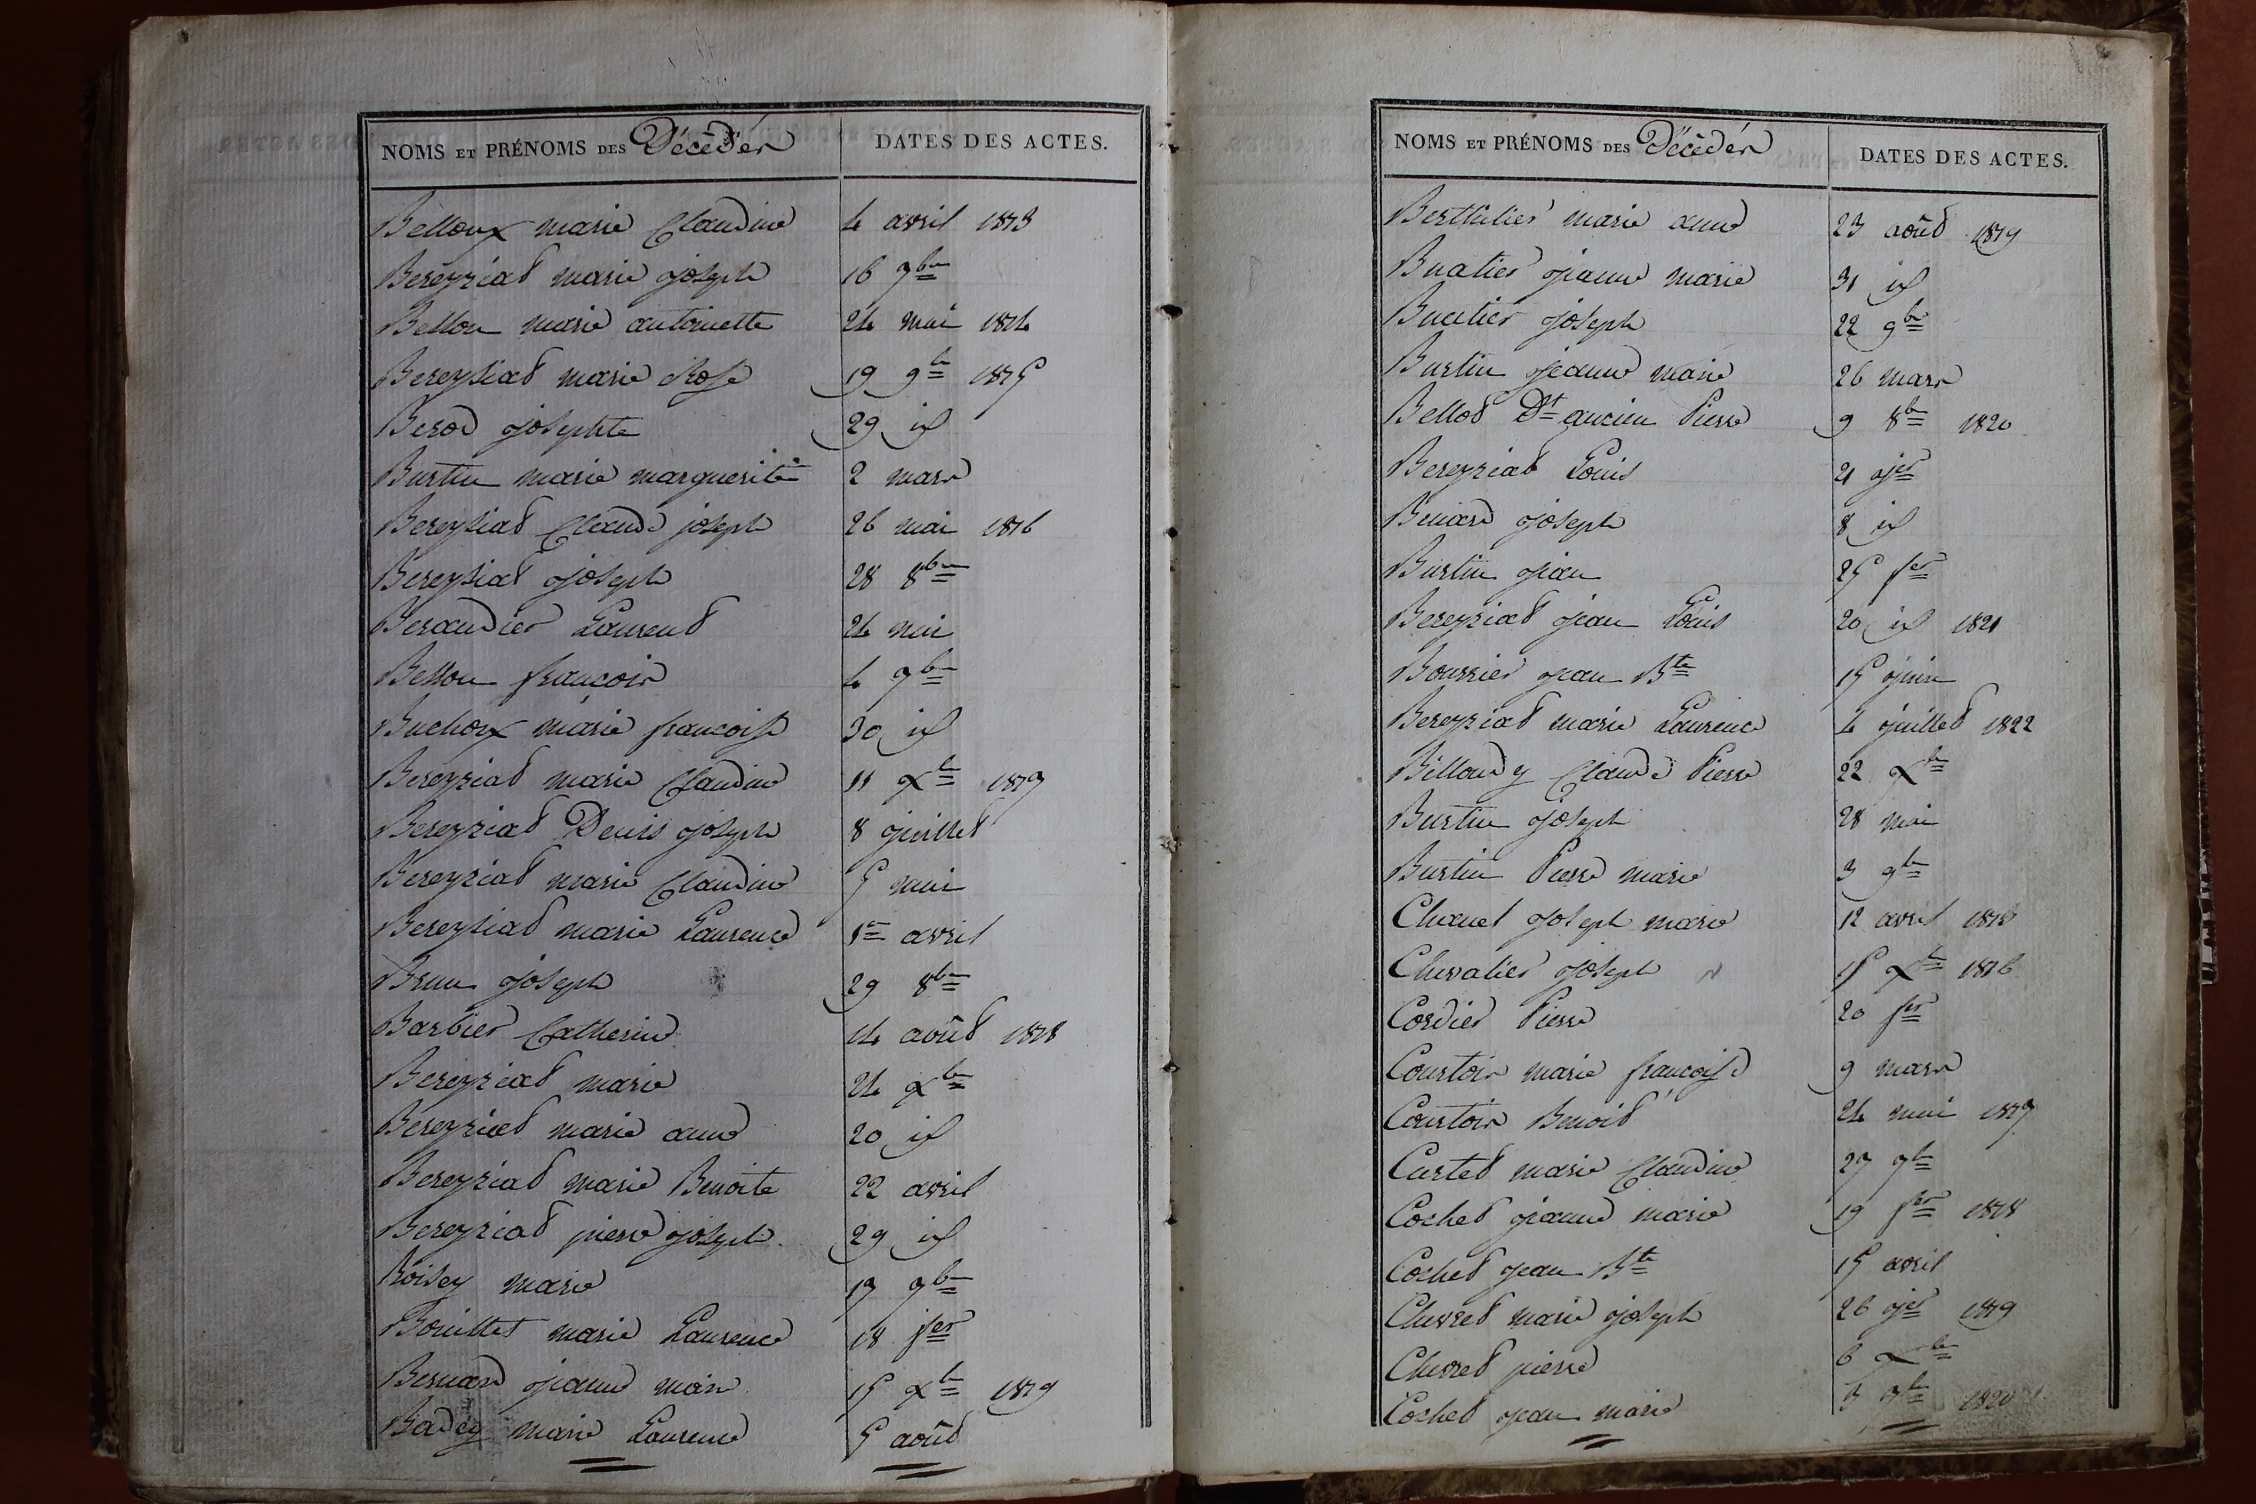 NOMS ET PRÉNOMS DES Décédés DATES DES ACTES.
Belloux marie Claudine 4 avril 1813
Bereyziat marie joseph 16 7bre
Bellon marie antoinette 24 mai 1814
Bereysiat marie Rose 19 9bre 1815
Berod josephte 29 id
Burtin marie marguerite 2 mars
Bereysiat Claude joseph 26 mai 1816
Bereysiat joseph 28 8bre
Beraudier Laurent 24 mai
Bellon francois 4 7bre
Buchoux marie francoise 30 id
Bereyziat marie Claudine 11 Xbre 1817
Bereyziat Denis joseph 8 juillet
Bereyziat marie Claudine 5 mai
Bereysiat marie Laurence 1er avril
Brun joseph 29 8bre
Barbier Catherine 14 août 1818
Bereyziat marie 24 Xbre
Bereyziat marie anne 20 id
Bereyziat marie Benoite 22 avril
Bereyziat pierre joseph 29 id
Boisey marie 17 7bre
Bouillet marie Laurence 18 fer
Bernard jeanne marie 15 Xbre 1819
Badey marie Laurence 5 août
NOMS ET PRÉNOMS DES Décédés DATES DES ACTES.
Berthilier marie anne 23 août 1819
Buatier jeanne marie 31 id
Buatier joseph 22 9bre
Burtin jeanne marie 26 mars
Bellod Dt ancien Pierre 9 8bre 1820
Bereyziat Louis 21 jer
Benard joseph 8 id
Burtin jean 25 fer
Bereyziat jean Louis 20 id 1821
Bourrier jean Bte 15 juin
Bereyziat marie Laurence 4 juillet 1822
Billoudy Claude Pierre 22 Xbre
Burtin joseph 28 mai
Burtin Pierre marie 3 9bre
Chanel joseph marie 12 avril 1813
Chevalier joseph 15 Xbre 1816
Cordier Pierre 20 fer
Courtois marie francoise 9 mars
Courtois Benoit 24 mai 1817
Curtet marie Claudine 27 7bre
Cochet jeanne marie 19 fer 1818
Cochet jean Bte 15 avril
Chevret marie joseph 26 jer 1819
Chevret pierre 6 Xbre
Cochet jean marie 3 7bre 1820